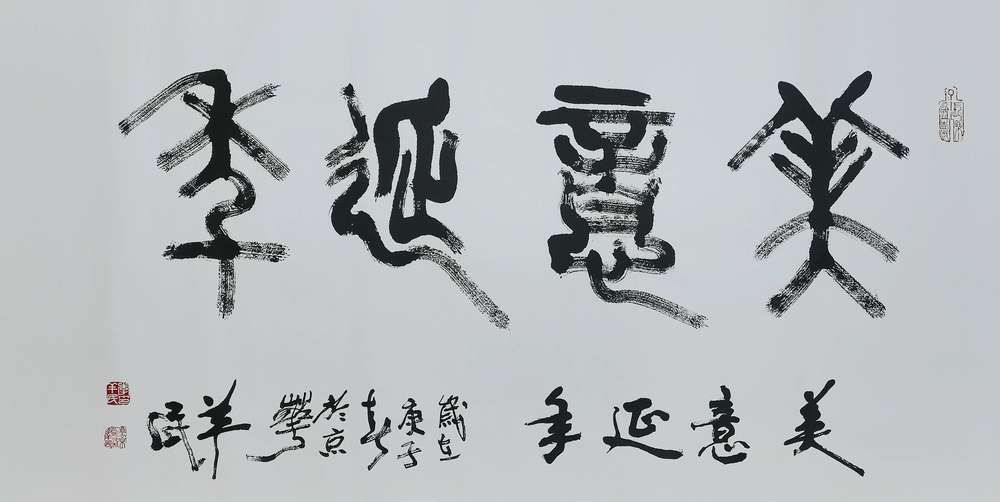 美意延年
美意延年
歲在
庚子
春
於京
華
羊
民